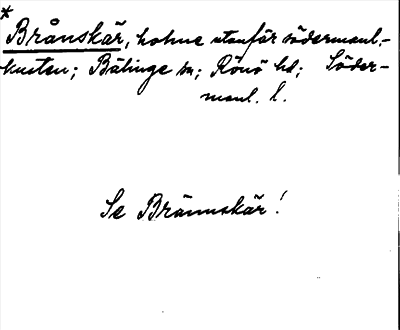 *
Brånskär, holme utanför södermanl.-
kusten; Bälinge sn; Rönö hd; Söder-
manl. l.
Se Brännskär!